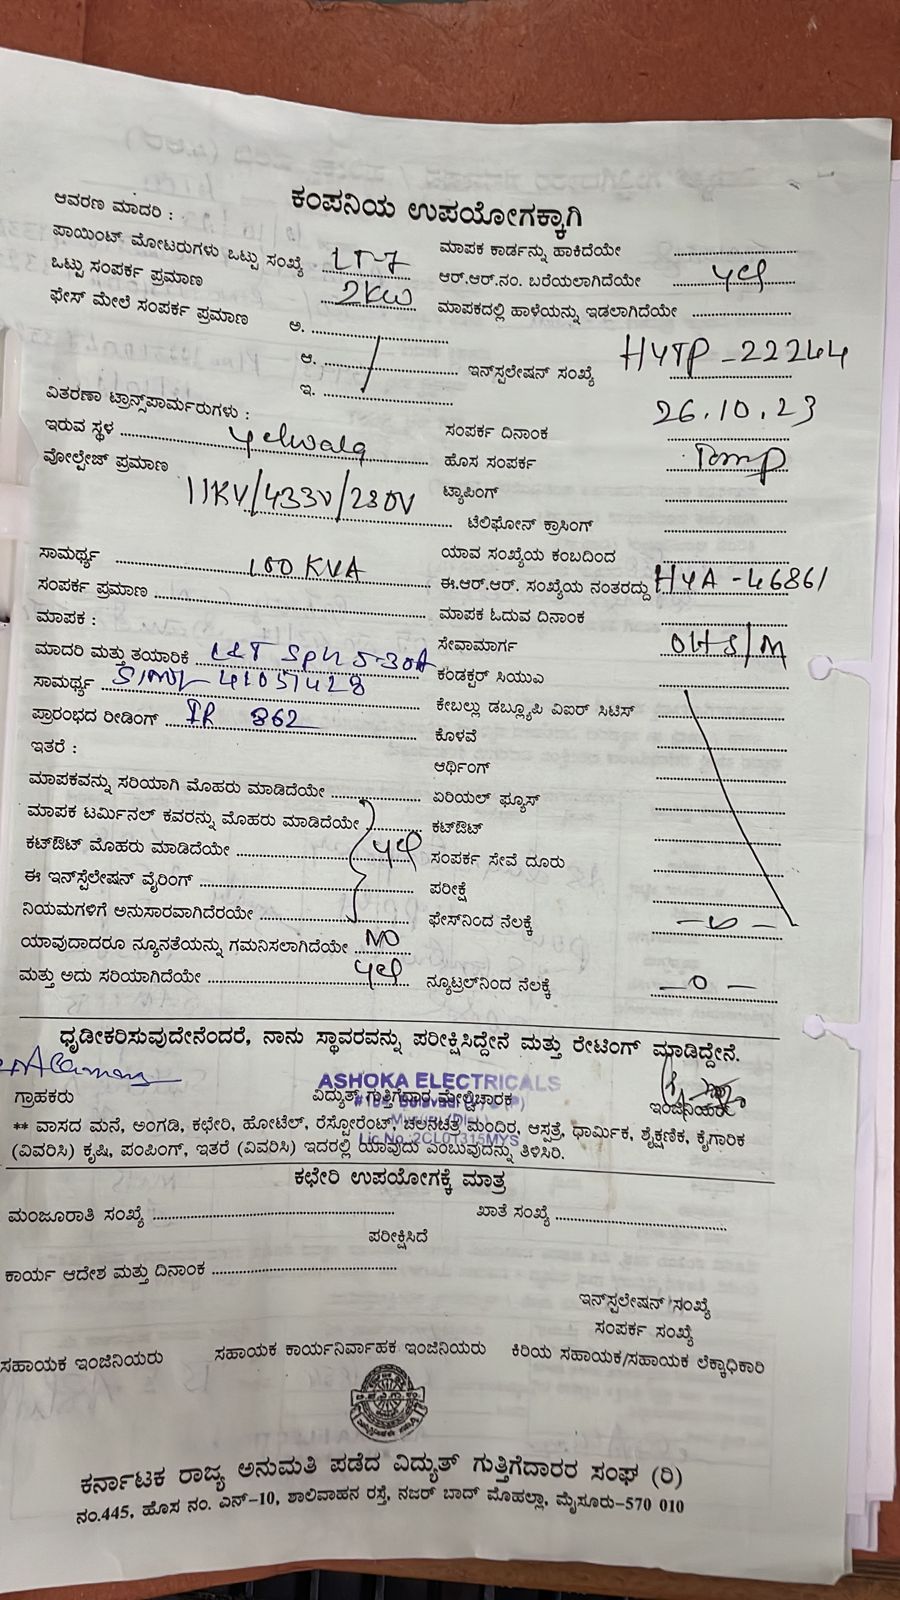 ಕಂಪನಿಯ ಉಪಯೋಗಕ್ಕಾಗಿ
ಆವರಣ ಮಾದರಿ :
ಪಾಯಿಂಟ್ ಮೋಟರುಗಳು ಒಟ್ಟು ಸಂಖ್ಯೆ LT-7
ಒಟ್ಟು ಸಂಪರ್ಕ ಪ್ರಮಾಣ 2KW
ಫೇಸ್ ಮೇಲೆ ಸಂಪರ್ಕ ಪ್ರಮಾಣ ಅ.
ಆ.
ಇ.
ವಿತರಣಾ ಟ್ರಾನ್ಸ್‌ಪಾರ್ಮರುಗಳು :
ಇರುವ ಸ್ಥಳ Yelwala
ವೋಲ್ಟೇಜ್ ಪ್ರಮಾಣ
11KV/433V/230V
ಸಾಮರ್ಥ್ಯ 100 KVA
ಸಂಪರ್ಕ ಪ್ರಮಾಣ
ಮಾಪಕ :
ಮಾದರಿ ಮತ್ತು ತಯಾರಿಕೆ L&T 5-30A
ಸಾಮರ್ಥ್ಯ 41057428
ಪ್ರಾರಂಭದ ರೀಡಿಂಗ್ IR 862
ಇತರೆ :
ಮಾಪಕವನ್ನು ಸರಿಯಾಗಿ ಮೊಹರು ಮಾಡಿದೆಯೇ
ಮಾಪಕ ಟರ್ಮಿನಲ್ ಕವರನ್ನು ಮೊಹರು ಮಾಡಿದೆಯೇ
ಕಟ್‌ಔಟ್ ಮೊಹರು ಮಾಡಿದೆಯೇ yes
ಈ ಇನ್‌ಸ್ಟಲೇಷನ್ ವೈರಿಂಗ್
ನಿಯಮಗಳಿಗೆ ಅನುಸಾರವಾಗಿದೆರಯೇ
ಯಾವುದಾದರೂ ನ್ಯೂನತೆಯನ್ನು ಗಮನಿಸಲಾಗಿದೆಯೇ NO
ಮತ್ತು ಅದು ಸರಿಯಾಗಿದೆಯೇ yes
ಮಾಪಕ ಕಾರ್ಡನ್ನು ಹಾಕಿದೆಯೇ
ಆರ್.ಆರ್.ನಂ. ಬರೆಯಲಾಗಿದೆಯೇ yes
ಮಾಪಕದಲ್ಲಿ ಹಾಳೆಯನ್ನು ಇಡಲಾಗಿದೆಯೇ
ಇನ್‌ಸ್ಟಲೇಷನ್ ಸಂಖ್ಯೆ HYTP-22244
ಸಂಪರ್ಕ ದಿನಾಂಕ 26.10.23
ಹೊಸ ಸಂಪರ್ಕ Temp
ಟ್ಯಾಪಿಂಗ್
ಟೆಲಿಫೋನ್ ಕ್ರಾಸಿಂಗ್
ಯಾವ ಸಂಖ್ಯೆಯ ಕಂಬದಿಂದ
ಈ.ಆರ್.ಆರ್. ಸಂಖ್ಯೆಯ ನಂತರದ್ದು HYA-46861
ಮಾಪಕ ಓದುವ ದಿನಾಂಕ
ಸೇವಾಮಾರ್ಗ OHS/M
ಕಂಡಕ್ಟರ್ ಸಿಯುವಿ
ಕೇಬಲ್ಲು ಡಬ್ಲ್ಯೂಪಿ ವಿಐರ್ ಸಿಟಿಸ್
ಕೊಳವೆ
ಆರ್ಥಿಂಗ್
ಏರಿಯಲ್ ಫ್ಯೂಸ್
ಕಟ್‌ಔಟ್
ಸಂಪರ್ಕ ಸೇವೆ ದೂರು
ಪರೀಕ್ಷೆ
ಫೇಸ್‌ನಿಂದ ನೆಲಕ್ಕೆ
ನ್ಯೂಟ್ರಲ್‌ನಿಂದ ನೆಲಕ್ಕೆ —0—
ಧೃಡೀಕರಿಸುವುದೇನೆಂದರೆ, ನಾನು ಸ್ಥಾವರವನ್ನು ಪರೀಕ್ಷಿಸಿದ್ದೇನೆ ಮತ್ತು ರೇಟಿಂಗ್ ಮಾಡಿದ್ದೇನೆ.
ASHOKA ELECTRICALS
ಗ್ರಾಹಕರು ವಿದ್ಯುತ್ ಗುತ್ತಿಗೆದಾರ ಮೇಲ್ವಿಚಾರಕ ಇಂಜಿನಿಯರು
** ವಾಸದ ಮನೆ, ಅಂಗಡಿ, ಕಛೇರಿ, ಹೋಟೆಲ್, ರೆಸ್ಟೋರೆಂಟ್, ಚಲನಚಿತ್ರ ಮಂದಿರ, ಆಸ್ಪತ್ರೆ, ಧಾರ್ಮಿಕ, ಶೈಕ್ಷಣಿಕ, ಕೈಗಾರಿಕ
Lic.No. 2CL01315MYS
(ವಿವರಿಸಿ) ಕೃಷಿ, ಪಂಪಿಂಗ್, ಇತರೆ (ವಿವರಿಸಿ) ಇದರಲ್ಲಿ ಯಾವುದು ಎಂಬುವುದನ್ನು ತಿಳಿಸಿರಿ.
ಕಛೇರಿ ಉಪಯೋಗಕ್ಕೆ ಮಾತ್ರ
ಮಂಜೂರಾತಿ ಸಂಖ್ಯೆ ಖಾತೆ ಸಂಖ್ಯೆ
ಪರೀಕ್ಷಿಸಿದೆ
ಕಾರ್ಯ ಆದೇಶ ಮತ್ತು ದಿನಾಂಕ
ಇನ್‌ಸ್ಟಲೇಷನ್ ಸಂಖ್ಯೆ
ಸಂಪರ್ಕ ಸಂಖ್ಯೆ
ಸಹಾಯಕ ಇಂಜಿನಿಯರು ಸಹಾಯಕ ಕಾರ್ಯನಿರ್ವಾಹಕ ಇಂಜಿನಿಯರು ಕಿರಿಯ ಸಹಾಯಕ/ಸಹಾಯಕ ಲೆಕ್ಕಾಧಿಕಾರಿ
ಕರ್ನಾಟಕ ರಾಜ್ಯ ಅನುಮತಿ ಪಡೆದ ವಿದ್ಯುತ್ ಗುತ್ತಿಗೆದಾರರ ಸಂಘ (ರಿ)
ನಂ.445, ಹೊಸ ನಂ. ಎನ್-10, ಶಾಲಿವಾಹನ ರಸ್ತೆ, ನಜರ್ ಬಾದ್ ಮೊಹಲ್ಲಾ, ಮೈಸೂರು-570 010